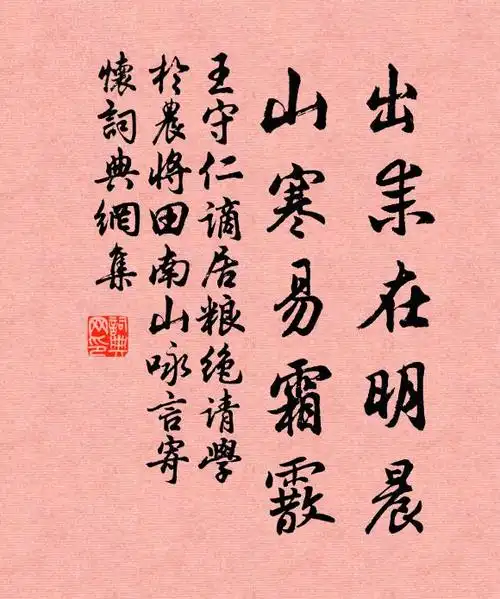 出耒在明晨
山寒易霜霰
王守仁謫居粮绝请學
於農將田南山咏言寄
懷詞典網集